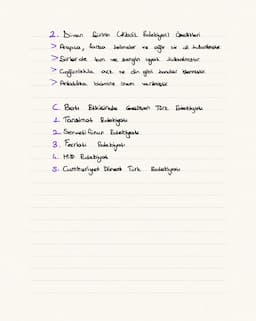 2. Divan Şiirinin (Klasik Edebiyat) Özellikleri
> Arapça, farsça kelimeler ve ağır bir dil kullanılmıştır.
> Şiirlerde tam ve zengin uyak kullanılmıştır.
> Çoğunlukla aşk ve din gibi konular işlenmiştir.
> Anlatılana biçimine önem verilmiştir.
C. Batı Etkisinde Gelişen Türk Edebiyatı
1. Tanzimat Edebiyatı
2. Servetifünun Edebiyatı
3. Fecriati Edebiyatı
4. Milli Edebiyat
5. Cumhuriyet Dönemi Türk Edebiyatı